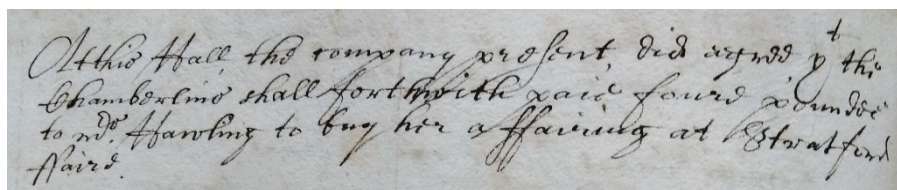 Att this Hall, the company present, did agree yt the
Chamberline shall forthwith paie foure poundes
to Mrs. Hawling to buy her a ffairing at Stratford
ffaire.